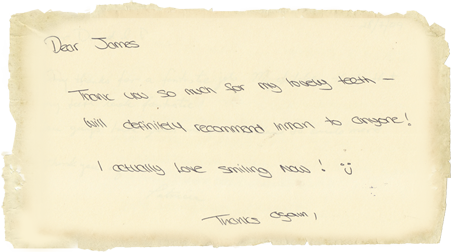 Dear James
Thank you so much for my lovely teeth –
Will definitely recommend inman to anyone!
I actually love smiling now! :)
Thanks again,